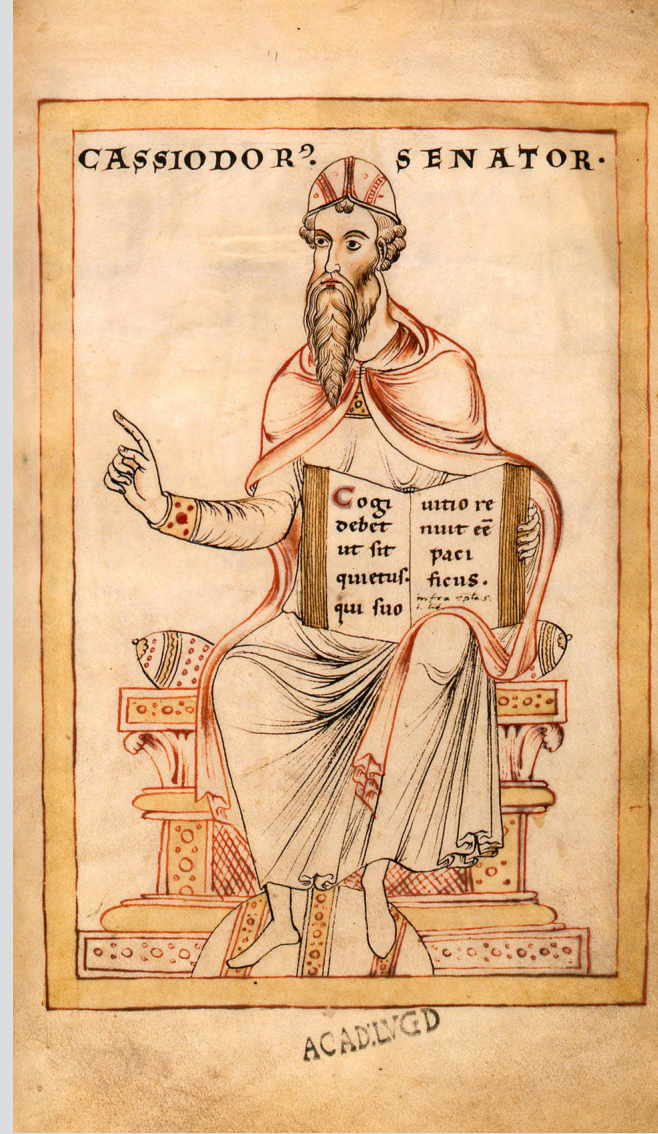 CASSIODORꝰ. SENATOR.
Cogi
debet
ut sit
quietus.
qui suo
uitio re
nuit eē
paci
ficus.
infra epla 5.
i. lib.
ACAD. LVGD